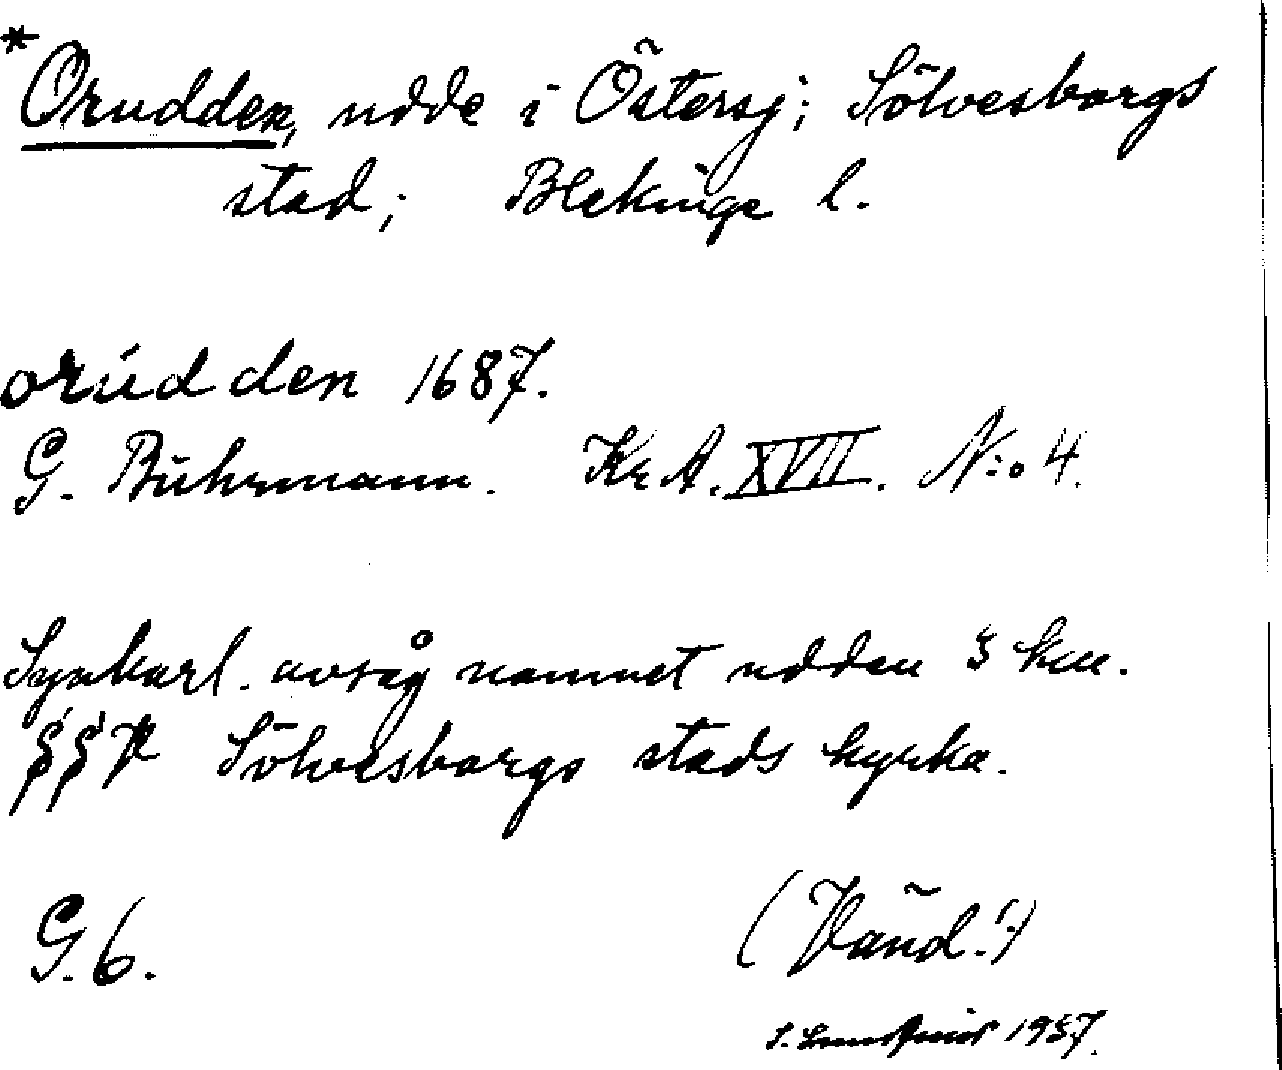 *Orudden, udde i Östersj; Sölvesborgs
stad; Blekinge l.
orúdden 1687.
G. Buhrmann. Kr. A. XVII. N:o 4.
Synbarl. avsåg namnet udden 3 km.
SSV Sölvesborgs stads kyrka.
G. 6.
(Vänd!)
1957.